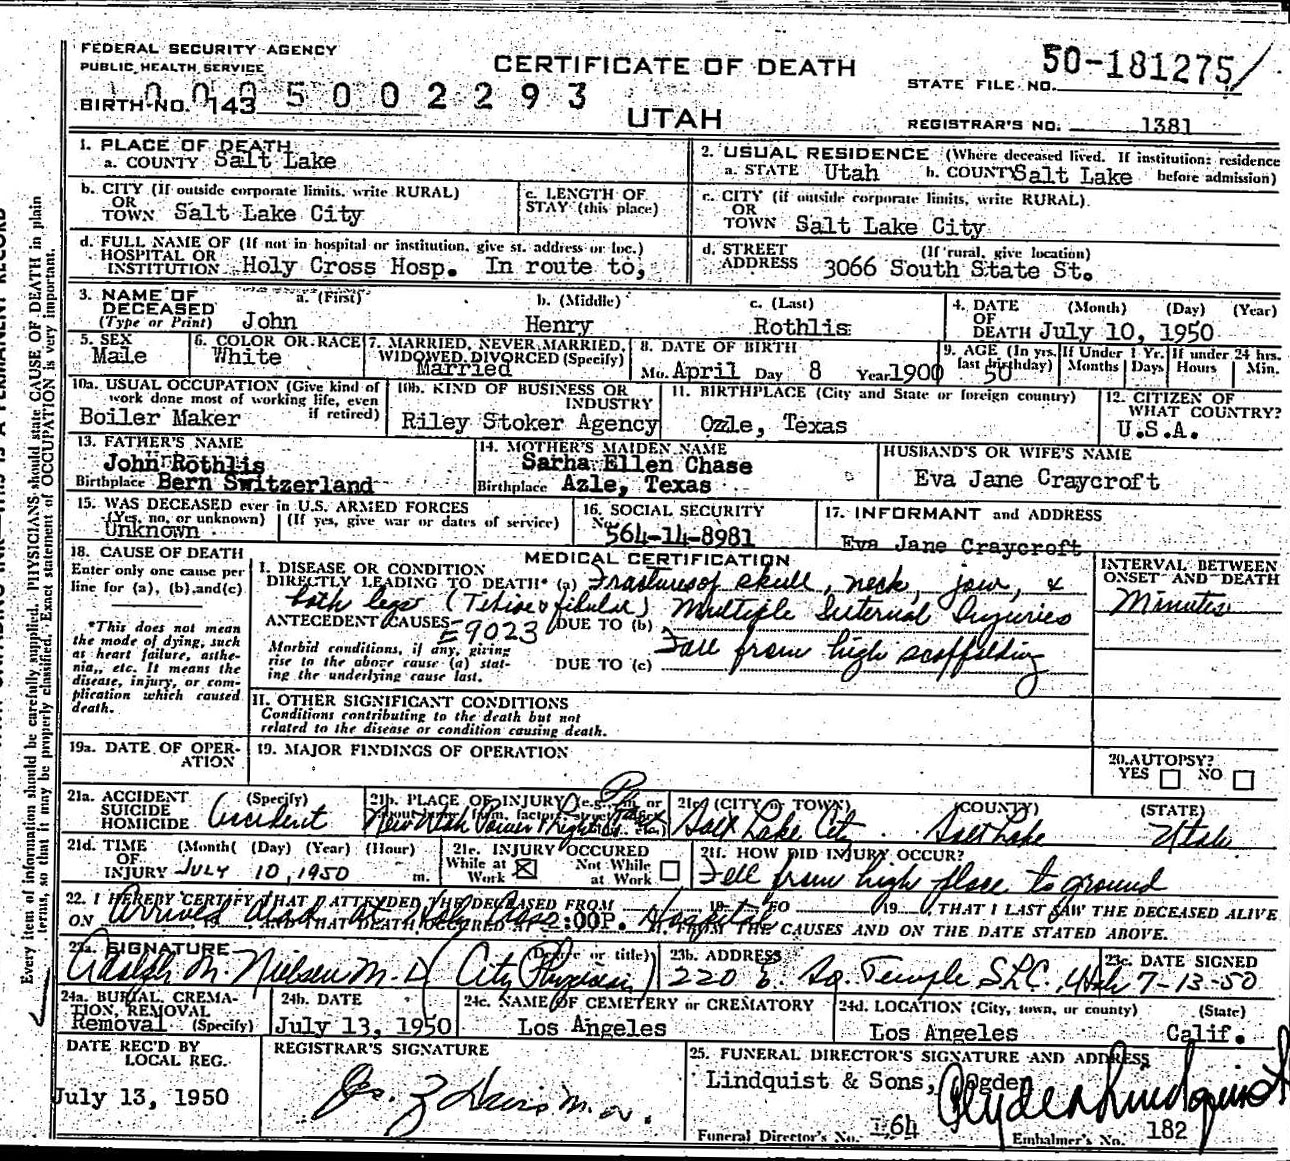 FEDERAL SECURITY AGENCY
PUBLIC HEALTH SERVICE
CERTIFICATE OF DEATH
50-181275
STATE FILE NO.
BIRTH NO. 143
5 0 0 2 2 9 3
UTAH
REGISTRAR'S NO. 1381
1. PLACE OF DEATH
a. COUNTY Salt Lake
2. USUAL RESIDENCE (Where deceased lived. If institution: residence before admission)
a. STATE Utah b. COUNTY Salt Lake
b. CITY (If outside corporate limits, write RURAL)
OR
TOWN Salt Lake City
c. LENGTH OF
STAY (this place)
c. CITY (if outside corporate limits, write RURAL)
OR
TOWN Salt Lake City
d. FULL NAME OF (If not in hospital or institution, give st. address or loc.)
HOSPITAL OR
INSTITUTION Holy Cross Hosp. In route to,
d. STREET (If rural, give location)
ADDRESS 3066 South State St.
3. NAME OF a. (First) b. (Middle) c. (Last)
DECEASED
(Type or Print) John Henry Rothlis
4. DATE (Month) (Day) (Year)
OF
DEATH July 10, 1950
5. SEX
Male
6. COLOR OR RACE
White
7. MARRIED, NEVER MARRIED,
WIDOWED, DIVORCED (Specify)
Married
8. DATE OF BIRTH
Mo. April Day 8 Year 1900
9. AGE (In yrs. last birthday)
50
If Under 1 Yr.
Months Days
If under 24 hrs.
Hours Min.
10a. USUAL OCCUPATION (Give kind of
work done most of working life, even
if retired)
Boiler Maker
10b. KIND OF BUSINESS OR
INDUSTRY
Riley Stoker Agency
11. BIRTHPLACE (City and State or foreign country)
Ozle, Texas
12. CITIZEN OF
WHAT COUNTRY?
U.S.A.
13. FATHER'S NAME
John Rothlis
Birthplace Bern Switzerland
14. MOTHER'S MAIDEN NAME
Sarha Ellen Chase
Birthplace Azle, Texas
HUSBAND'S OR WIFE'S NAME
Eva Jane Craycroft
15. WAS DECEASED ever in U.S. ARMED FORCES
(Yes, no, or unknown) (If yes, give war or dates of service)
Unknown
16. SOCIAL SECURITY
No. 564-14-8981
17. INFORMANT and ADDRESS
Eva Jane Craycroft
18. CAUSE OF DEATH
Enter only one cause per
line for (a), (b), and (c)
*This does not mean
the mode of dying, such
as heart failure, asthe-
nia, etc. It means the
disease, injury, or com-
plication which caused
death.
MEDICAL CERTIFICATION
I. DISEASE OR CONDITION
DIRECTLY LEADING TO DEATH* (a) Fractures of skull, neck, jaw, &
both legs (Tibia & fibulae)
ANTECEDENT CAUSES E9023 DUE TO (b) Multiple Internal Injuries
Morbid conditions, if any, giving
rise to the above cause (a) stat-
ing the underlying cause last.
DUE TO (c) Fall from high scaffolding
INTERVAL BETWEEN
ONSET AND DEATH
Minutes
II. OTHER SIGNIFICANT CONDITIONS
Conditions contributing to the death but not
related to the disease or condition causing death.
19a. DATE OF OPER-
ATION
19. MAJOR FINDINGS OF OPERATION
20. AUTOPSY?
YES NO
21a. ACCIDENT (Specify)
SUICIDE
HOMICIDE Accident
21b. PLACE OF INJURY (e.g., in or
about home, farm, factory, street, etc.)
New Utah Power & Light Co. Plant
21c. (CITY or TOWN) (COUNTY) (STATE)
Salt Lake City Salt Lake Utah
21d. TIME (Month) (Day) (Year) (Hour)
OF
INJURY JULY 10, 1950 m.
21e. INJURY OCCURED
While at Work Not While at Work
21f. HOW DID INJURY OCCUR?
Fell from high place to ground
22. I HEREBY CERTIFY THAT I ATTENDED THE DECEASED FROM 19 TO 19, THAT I LAST SAW THE DECEASED ALIVE
ON 19 AND THAT DEATH OCCURED AT 2:00P. M FROM THE CAUSES AND ON THE DATE STATED ABOVE.
Arrived dead at Holy Cross Hospital
23a. SIGNATURE (Degree or title)
Nielsen M.D (City Physician)
23b. ADDRESS
220 E. So. Temple S.L.C. Utah
23c. DATE SIGNED
7-13-50
24a. BURIAL, CREMA-
TION, REMOVAL
Removal (Specify)
24b. DATE
July 13, 1950
24c. NAME OF CEMETERY or CREMATORY
Los Angeles
24d. LOCATION (City, town, or county) (State)
Los Angeles Calif.
DATE REC'D BY
LOCAL REG.
July 13, 1950
REGISTRAR'S SIGNATURE
25. FUNERAL DIRECTOR'S SIGNATURE AND ADDRESS
Lindquist & Sons, Ogden
Funeral Director's No. 164
Embalmer's No. 182
Every item of information should be carefully supplied. PHYSICIANS should state CAUSE OF DEATH in plain
terms, so that it may be properly classified. Exact statement of OCCUPATION is very important.